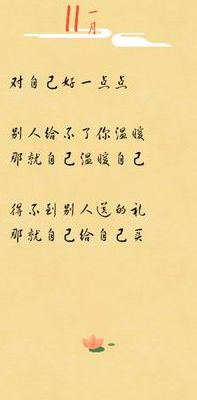 11一月
对自己好一点点
别人给不了你温暖
那就自己温暖自己
得不到别人送的礼
那就自己给自己买